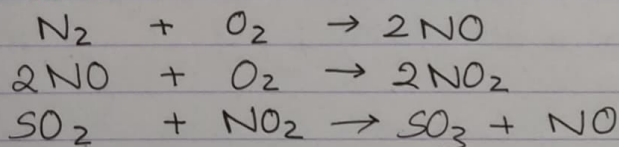 N₂ + O₂ → 2NO
2NO + O₂ → 2NO₂
SO₂ + NO₂ → SO₃ + NO